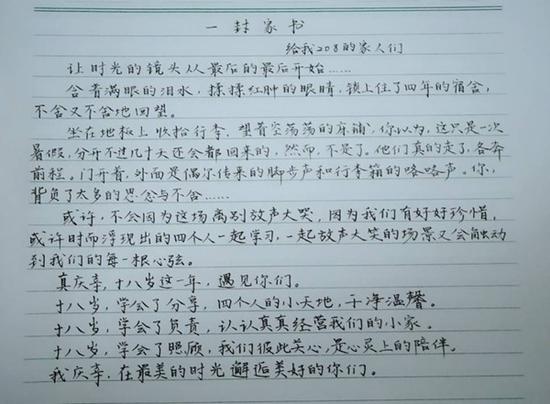 一封家书
给我208的家人们
让时光的镜头从最后的最后开始……
含着满眼的泪水，揉揉红肿的眼睛，锁上住了四年的宿舍，
不舍又不舍地回望。
坐在地板上收拾行李，望着空荡荡的床铺，你以为，这只是一次
暑假，分开不过几十天还会都回来的，然而，不是了。他们真的走了，各奔
前程。门开着，外面是偶尔传来的脚步声和行李箱的咯咯声。你，
背负了太多的思念与不舍……
或许，不会因为这场离别放声大哭，因为我们有好好珍惜，
或许时而浮现出的四个人一起学习，一起放声大笑的场景又会触动
到我们的每一根心弦。
真庆幸，十八岁这一年，遇见你们。
十八岁，学会了分享，四个人的小天地，干净温馨。
十八岁，学会了负责，认认真真经营我们的小家。
十八岁，学会了照顾，我们彼此关心，是心灵上的陪伴。
我庆幸，在最美的时光邂逅美好的你们。